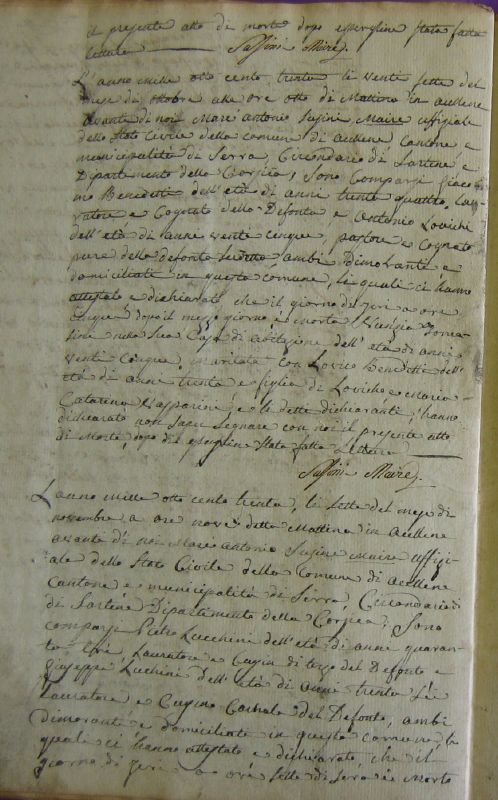 il presente atto di morte dopo essergline stata fatta
lettura Suffini Maire
L'anno mille otto cento trenta li vente sette del
mese di ottobre alle ore otto di Mattina in aullene
avante di noi Mare Antonio Susini Maire uffiziale
dello Stato Civile della comune di aullene Cantone e
municipalità di Serra, Circondario di Sartene e
Dipartimento della Corsica, Sono Comparsi Giaco
mo Benedetti dell'età di anni trenta quattro, Lau
ratore e Cognato della Defonta, e Antonio Loviche
dell'età di anni vente cinque, pastore e cognato
pure della defonta ambi Dimorante e
domiciliate in questa comune, le quali ci hanno
attestato e dichiarato che il giorno di jeri a ore
cinque dopo il mezzo giorno è morta
nella sua Casa di abitazione dell'età di anni
vente Cinque, maritata con Benedetti dell'
età di anne trenta e figlia di Loviche e Maria
Catarina Gasparini, e le dette dichiaranti, hanno
dichiarato non saper segnare con noi il presente atto
di Morte, dopo di essergline Stata fatta Lettura
Suffini Maire
L'anno mille otto cento trenta, li sette del mese di
novembre a ore nove della Mattina in Aullene
avante di noi Mare Antonio Susine Maire uffizi
ale dello Stato Civile della Comune di aullene
Cantone e municipalità di Serra, Circondario
di Sartene Dipartimento della Corsica, Sono
comparsi Pietro Lucchini dell'età di anne quaran
ta tre, Lauratore e Cugin di terzo del Defonto e
Giuseppe Luchini dell'età di Anni trenta Sei
Lauratore e Cugino Carnale del Defonto, ambi
dimorante e domiciliate in questa comune, le
quali ci hanno attestato e dichiarato, che il
giorno di jeri a ore sette di sera è morto